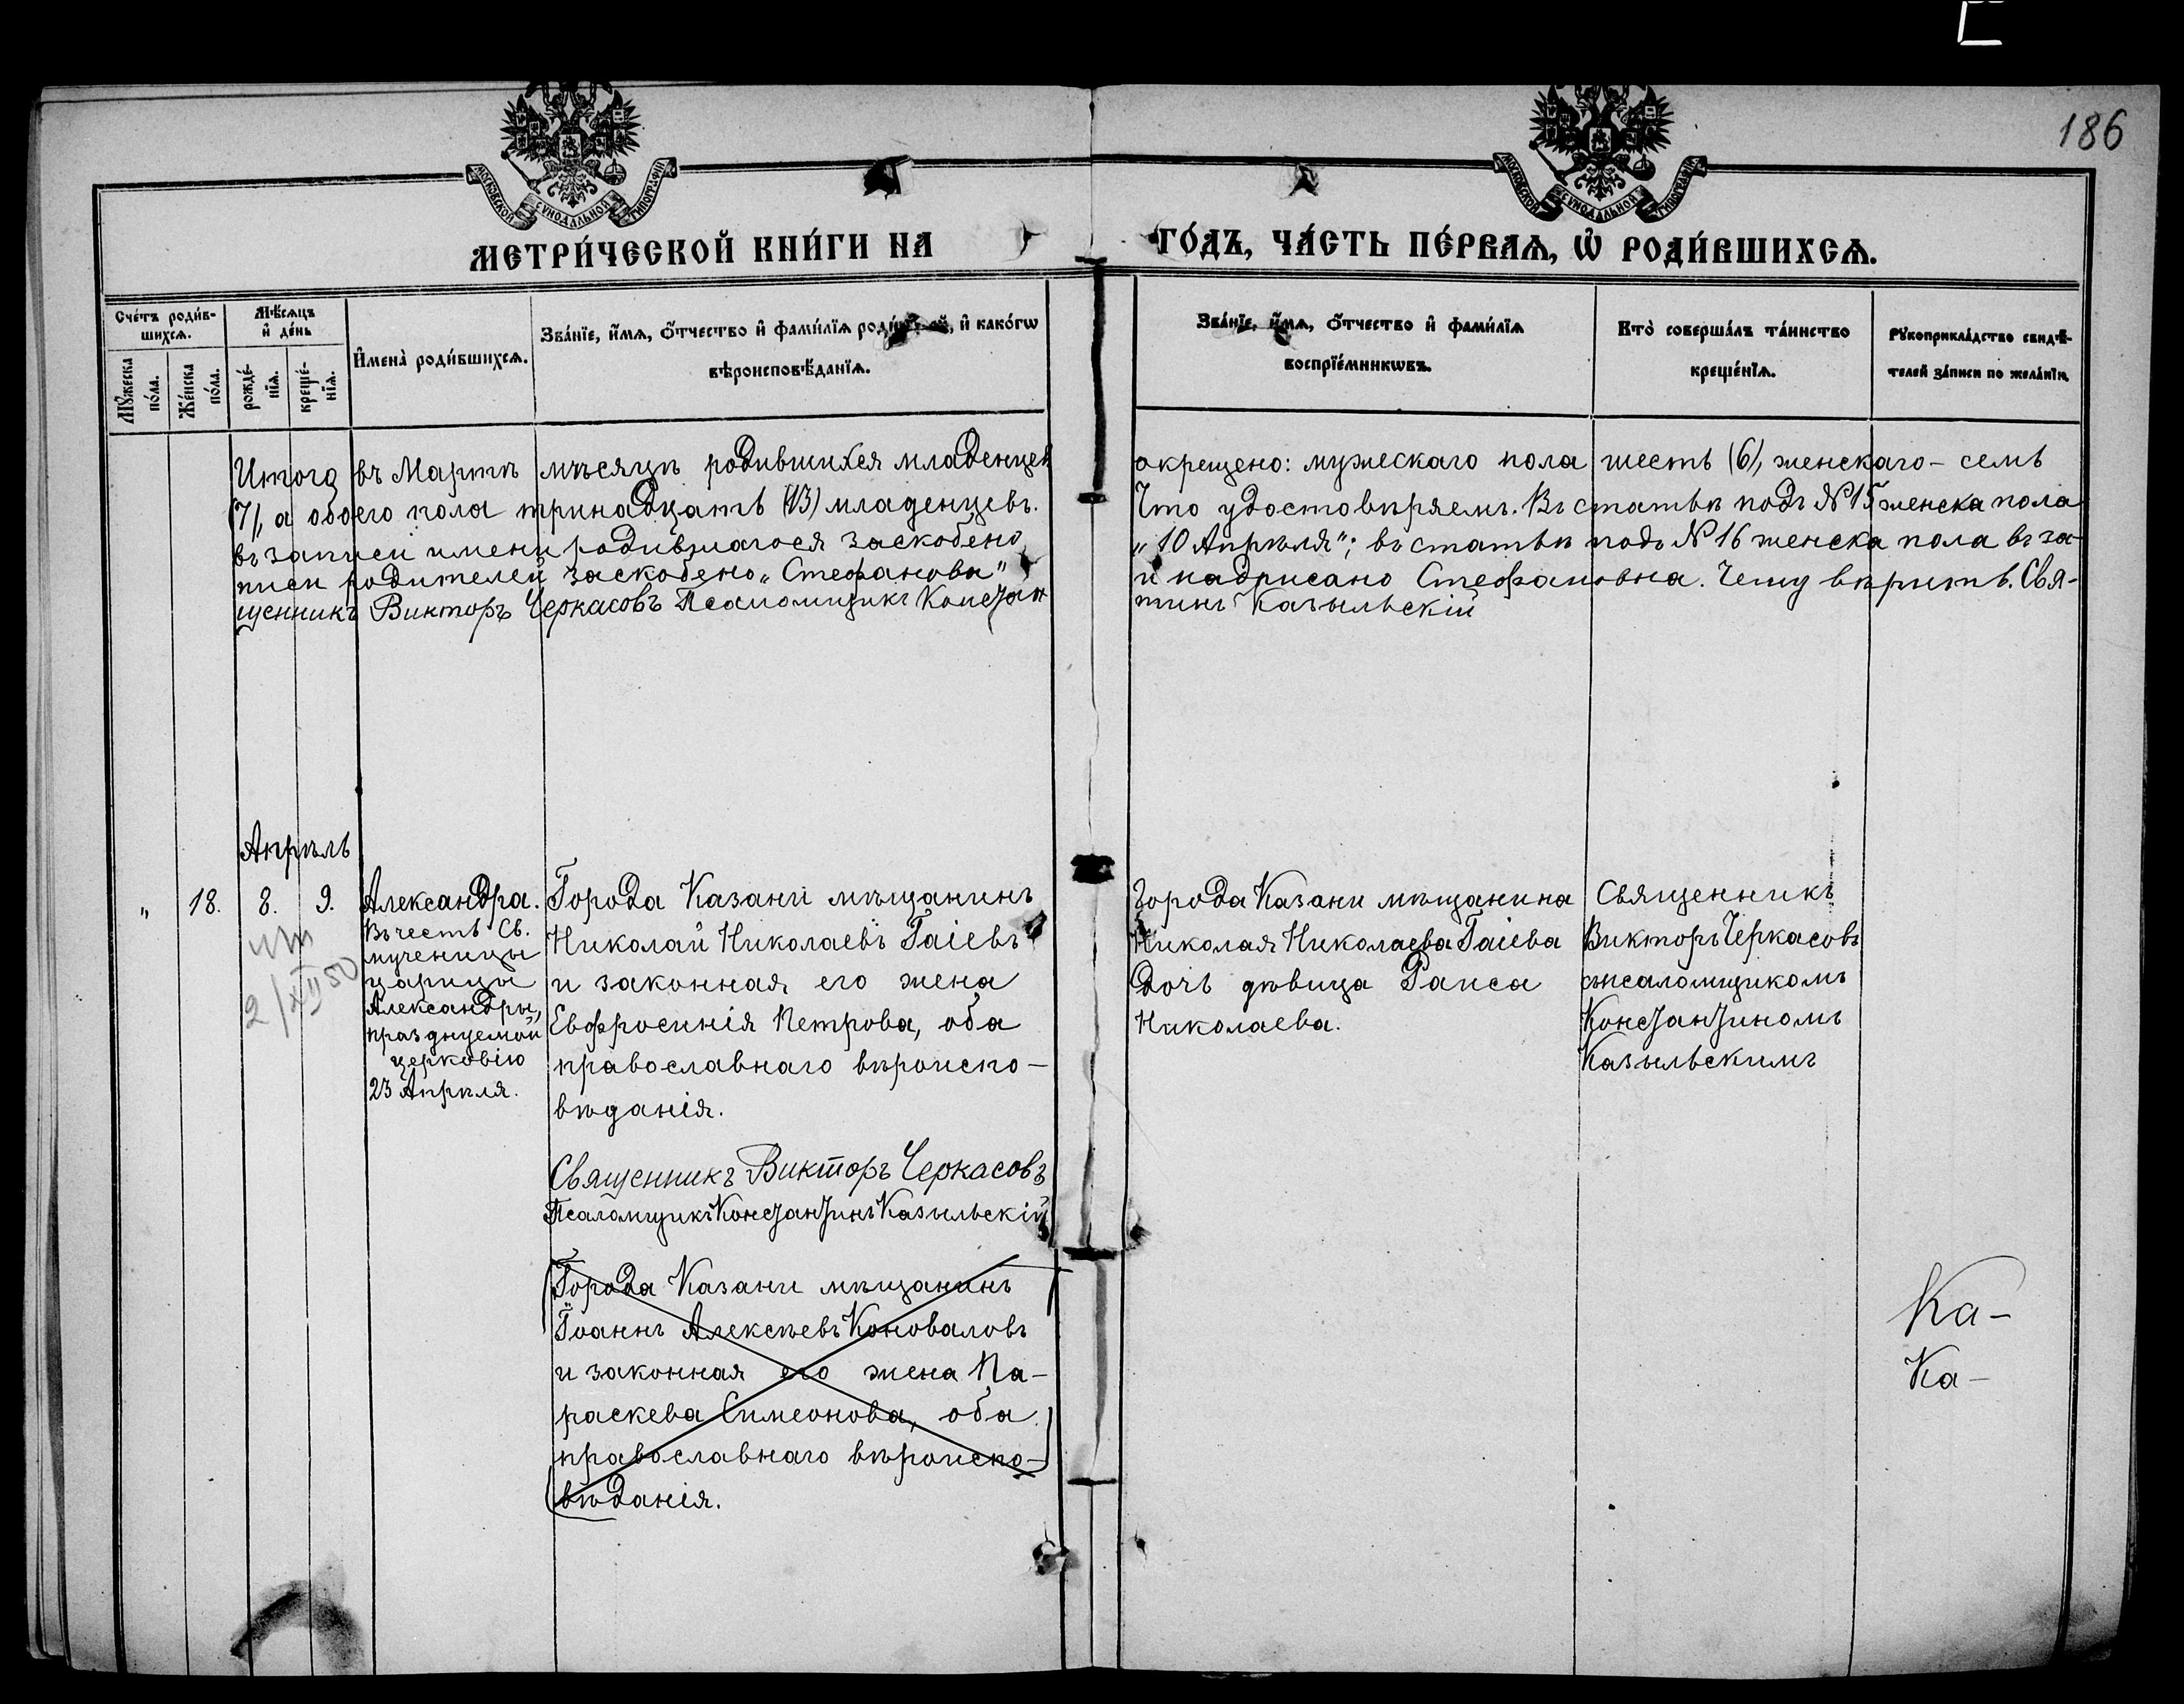 186
МОСКОВСКОЙ СУНОДАЛЬНОЙ ТИПОГРАФІИ
МОСКОВСКОЙ СУНОДАЛЬНОЙ ТИПОГРАФІИ
МЕТРИ́ЧЕСКОЙ КНИ́ГИ НА ГО́ДЪ, ЧА́СТЬ ПЕ́РВАѦ, Ѡ҆ РОДИ́ВШИХСѦ.
Сче́тъ роди́в-
шихсѧ.
Мѣ́сѧцъ
и҆ де́нь
Мꙋ́жеска
по́ла.
Же́нска
по́ла.
рожде́-
нїѧ.
креще́-
нїѧ.
И҆мена̀ роди́вшихсѧ.
Зва́нїе, и҆́мѧ, ѻ҆́тчество и҆ фами́лїѧ роди́телей, и҆ како́гѡ
вѣроисповѣ́данїѧ.
Зва́нїе, и҆́мѧ, ѻ҆́тчество и҆ фами́лїѧ
воспрїе́мникѡвъ.
Кто̀ соверша́лъ та́инство
креще́нїѧ.
Рꙋкоприкла́дство свидѣ́-
телей за́писи по жела́нїю.
Итого въ Мартѣ мѣсяцѣ родившихся младенцевъ окрещено: мужескаго пола шесть (6), женскаго – семь
(7), а обоего пола тринадцать (13) младенцевъ. Что удостовѣряемъ. Въ статьѣ подъ №15 женска пола
въ записи имени родившагося заскоблено „10 Апрѣля“; въ статьѣ подъ №16 женска пола въ за-
писи родителей заскоблено „Стефанова“ и надписано Стефановна. Чему вѣрить. Свя-
щенникъ Викторъ Черкасовъ Псаломщикъ Константинъ Казыльскій
Апрѣль
„ 18. 8. 9.
2/XII 50
Александра.
Въ честь Св.
мученицы
царицы
Александры,
празднуемой
церковію
23 Апрѣля.
Города Казани мѣщанинъ
Николай Николаевъ Гаіевъ
и законная его жена
Евфросинія Петрова, оба
православнаго вѣроиспо-
вѣданія.
Города Казани мѣщанина
Николая Николаева Гаіева
дочь дѣвица Раиса
Николаева.
Священникъ
Викторъ Черкасовъ
съ псаломщикомъ
Константиномъ
Казыльскимъ
Священникъ Викторъ Черкасовъ
Псаломщикъ Константинъ Казыльскій
Города Казани мѣщанинъ
Іоаннъ Алексѣевъ Коноваловъ
и законная его жена Па-
раскева Симеонова, оба
православнаго вѣроиспо-
вѣданія.
Ка-
Ка-